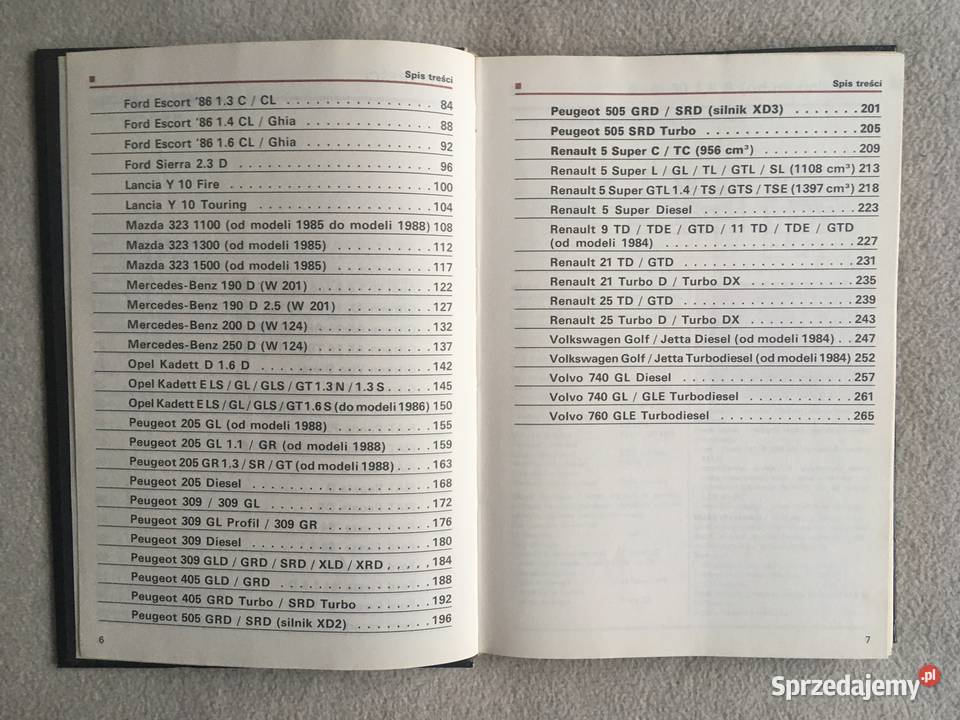 Spis treści
Ford Escort '86 1.3 C / CL . . . . . . . . . . . . . . . 84
Ford Escort '86 1.4 CL / Ghia . . . . . . . . . . . . 88
Ford Escort '86 1.6 CL / Ghia . . . . . . . . . . . . 92
Ford Sierra 2.3 D . . . . . . . . . . . . . . . . . . 96
Lancia Y 10 Fire . . . . . . . . . . . . . . . . . . 100
Lancia Y 10 Touring . . . . . . . . . . . . . . . . 104
Mazda 323 1100 (od modeli 1985 do modeli 1988) 108
Mazda 323 1300 (od modeli 1985) . . . . . . . . . 112
Mazda 323 1500 (od modeli 1985) . . . . . . . . . 117
Mercedes-Benz 190 D (W 201) . . . . . . . . . . . 122
Mercedes-Benz 190 D 2.5 (W 201) . . . . . . . . 127
Mercedes-Benz 200 D (W 124) . . . . . . . . . . . 132
Mercedes-Benz 250 D (W 124) . . . . . . . . . . . 137
Opel Kadett D 1.6 D . . . . . . . . . . . . . . . . 142
Opel Kadett E LS / GL / GLS / GT 1.3 N / 1.3 S . . . . . 145
Opel Kadett E LS / GL / GLS / GT 1.6 S (do modeli 1986) 150
Peugeot 205 GL (od modeli 1988) . . . . . . . . . 155
Peugeot 205 GL 1.1 / GR (od modeli 1988) . . . . 159
Peugeot 205 GR 1.3 / SR / GT (od modeli 1988) . . . . 163
Peugeot 205 Diesel . . . . . . . . . . . . . . . . . 168
Peugeot 309 / 309 GL . . . . . . . . . . . . . . . 172
Peugeot 309 GL Profil / 309 GR . . . . . . . . . . 176
Peugeot 309 Diesel . . . . . . . . . . . . . . . . . 180
Peugeot 309 GLD / GRD / SRD / XLD / XRD . . . . . 184
Peugeot 405 GLD / GRD . . . . . . . . . . . . . . 188
Peugeot 405 GRD Turbo / SRD Turbo . . . . . . 192
Peugeot 505 GRD / SRD (silnik XD2) . . . . . . . . 196
6
Spis treści
Peugeot 505 GRD / SRD (silnik XD3) . . . . . . . 201
Peugeot 505 SRD Turbo . . . . . . . . . . . . . . . 205
Renault 5 Super C / TC (956 cm³) . . . . . . . . . 209
Renault 5 Super L / GL / TL / GTL / SL (1108 cm³) 213
Renault 5 Super GTL 1.4 / TS / GTS / TSE (1397 cm³) 218
Renault 5 Super Diesel . . . . . . . . . . . . . . . 223
Renault 9 TD / TDE / GTD / 11 TD / TDE / GTD
(od modeli 1984) . . . . . . . . . . . . . . . . . . 227
Renault 21 TD / GTD . . . . . . . . . . . . . . . . 231
Renault 21 Turbo D / Turbo DX . . . . . . . . . . 235
Renault 25 TD / GTD . . . . . . . . . . . . . . . . 239
Renault 25 Turbo D / Turbo DX . . . . . . . . . . 243
Volkswagen Golf / Jetta Diesel (od modeli 1984) . . 247
Volkswagen Golf / Jetta Turbodiesel (od modeli 1984) 252
Volvo 740 GL Diesel . . . . . . . . . . . . . . . . . 257
Volvo 740 GL / GLE Turbodiesel . . . . . . . . . . 261
Volvo 760 GLE Turbodiesel . . . . . . . . . . . . . 265
7
Sprzedajemy.pl